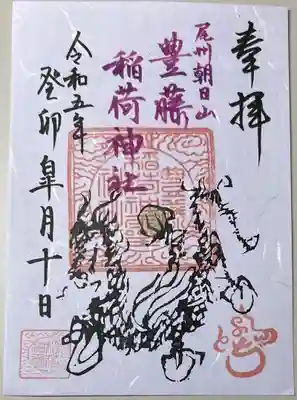 奉拝
尾州朝日山
豊藤
稲荷神社
令和五年
癸卯皐月十日